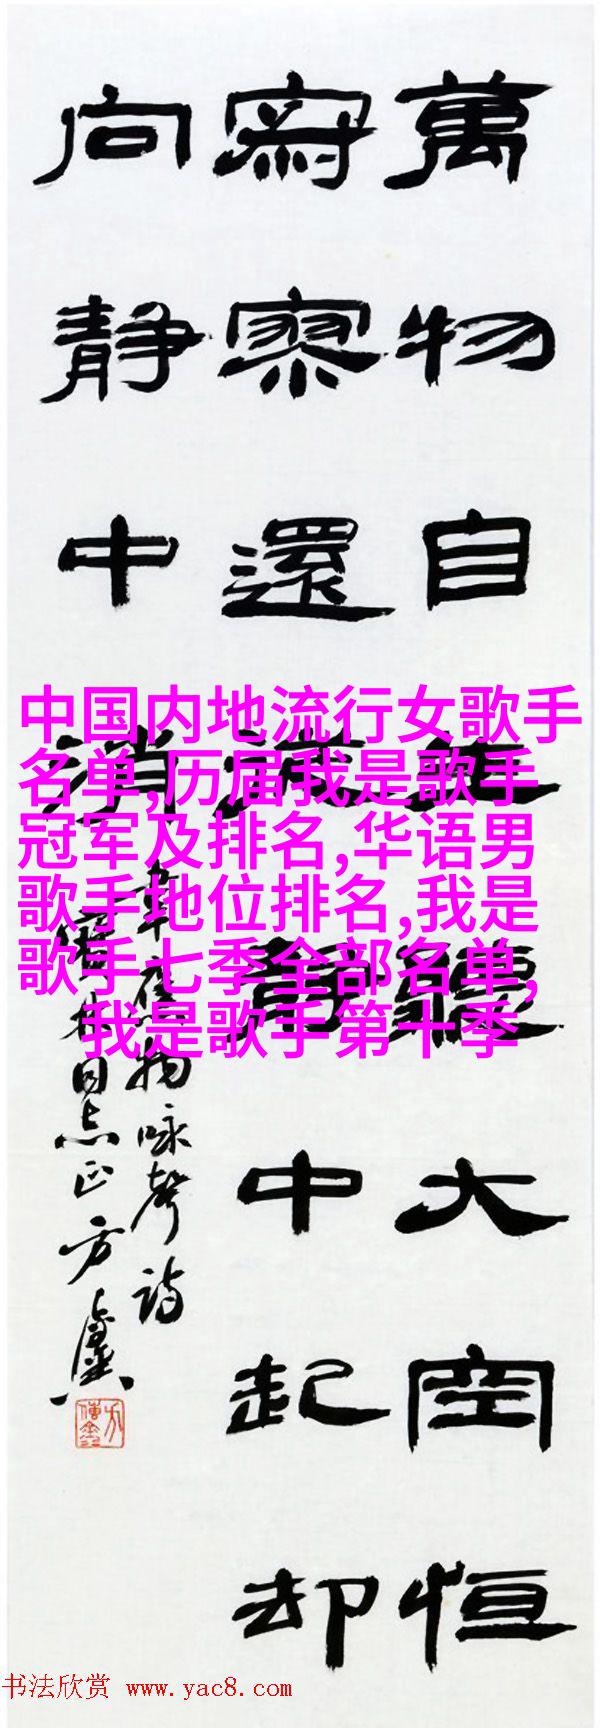 萬物自生聽大空恒
寂寥還從静中起却
向静中消
韋應物咏聲詩
林同志正方
中国内地流行女歌手
名单,历届我是歌手
冠军及排名,华语男
歌手地位排名,我是
歌手七季全部名单,
我是歌手第十季
书法欣赏 www.yac8.com